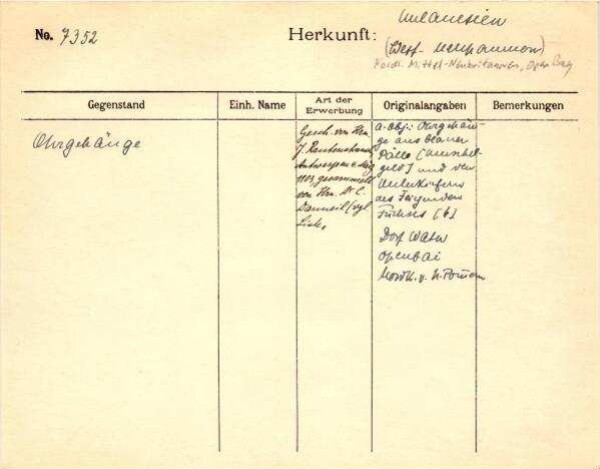 No. 7352 Herkunft: Melanesien
(West- Neupommern)
Nördl. Mittel-Neubritannien, Open Bay
Gegenstand Einh. Name Art der Erwerbung Originalangaben Bemerkungen
Ohrgehänge
Gesch. von Hrn.
J. Rautenstrauch
Antwerpen
1103 gesammelt
von Hrn. Dr. C.
Danneil (vgl.
Liste.
a-obj.: Ohrgehän-
ge aus blauer
Pälle [Muschel-
geld] und den
Unterkiefern
des fliegenden
Fuchses (6)
Dorf Watu
Openbai
Nordk. v. N. Pomm